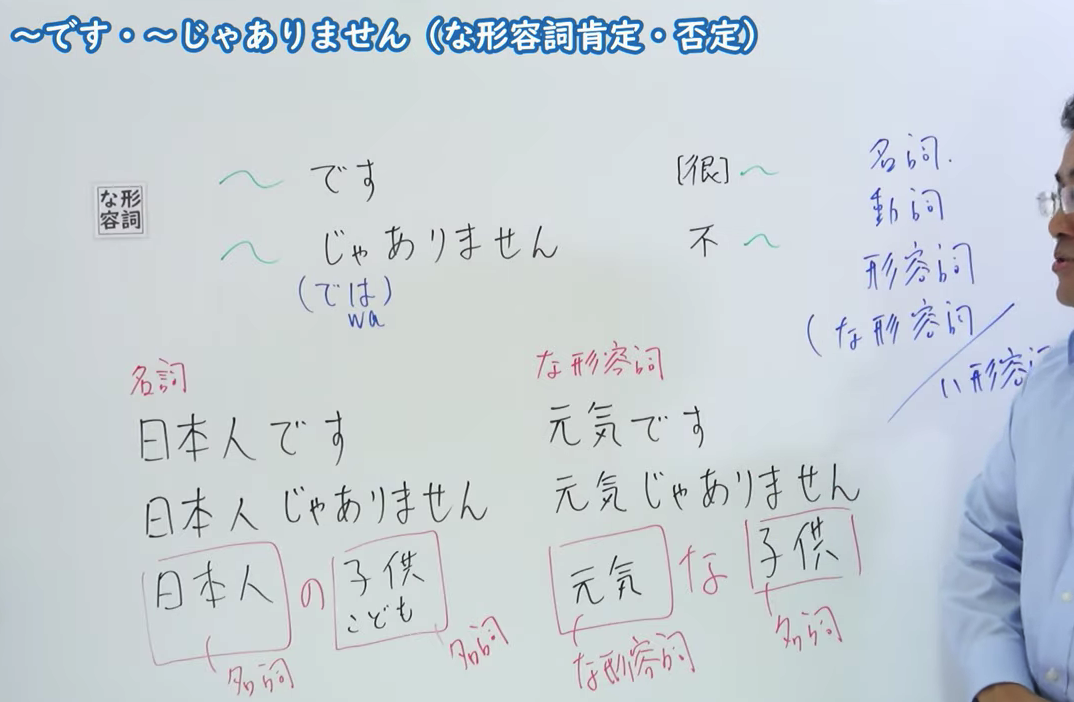 ～です・～じゃありません（な形容詞肯定・否定）
な形
容詞
～ です
～ じゃありません
(では)
wa
[很]～
不～
名詞.
動詞
形容詞
(な形容詞
い形容詞
名詞
日本人です
日本人じゃありません
日本人の子供
こども
名詞
名詞
な形容詞
元気です
元気じゃありません
元気な子供
な形容詞
名詞